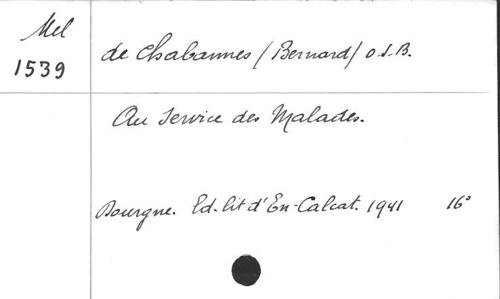 Mel
1539
de Chabannes (Bernard) O.S.B.
Au Service des Malades.
Dourgne. Ed. lit d'En-Calcat. 1941 16°